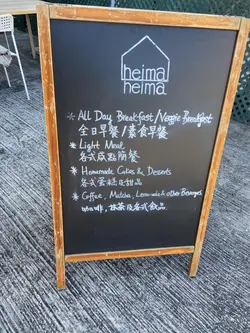 heima
heima
* All Day Breakfast/Veggie Breakfast
全日早餐/素食早餐
* Light Meal
各式輕簡餐
* Homemade Cakes & Desserts
各式蛋糕及甜品
* Coffee, Matcha, Lemonade & other Beverages
咖啡,抹茶及各式飲品